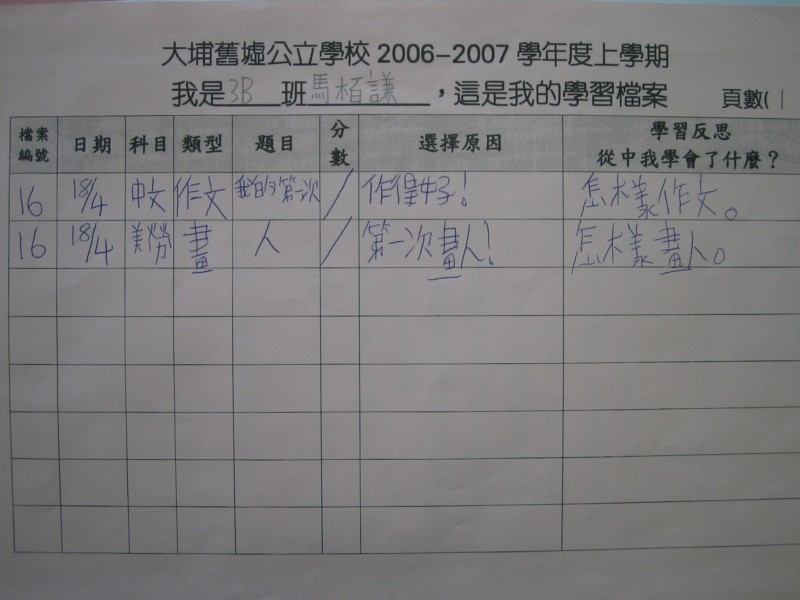 大埔舊墟公立學校 2006-2007 學年度上學期
我是 3B 班 馬栢謙 ，這是我的學習檔案 頁數( 1
檔案編號 日期 科目 類型 題目 分數 選擇原因 學習反思 從中我學會了什麼？
16 18/4 中文 作文 我的第一次 / 作得好！ 怎樣作文。
16 18/4 美勞 畫 人 / 第一次畫人！ 怎樣畫人。